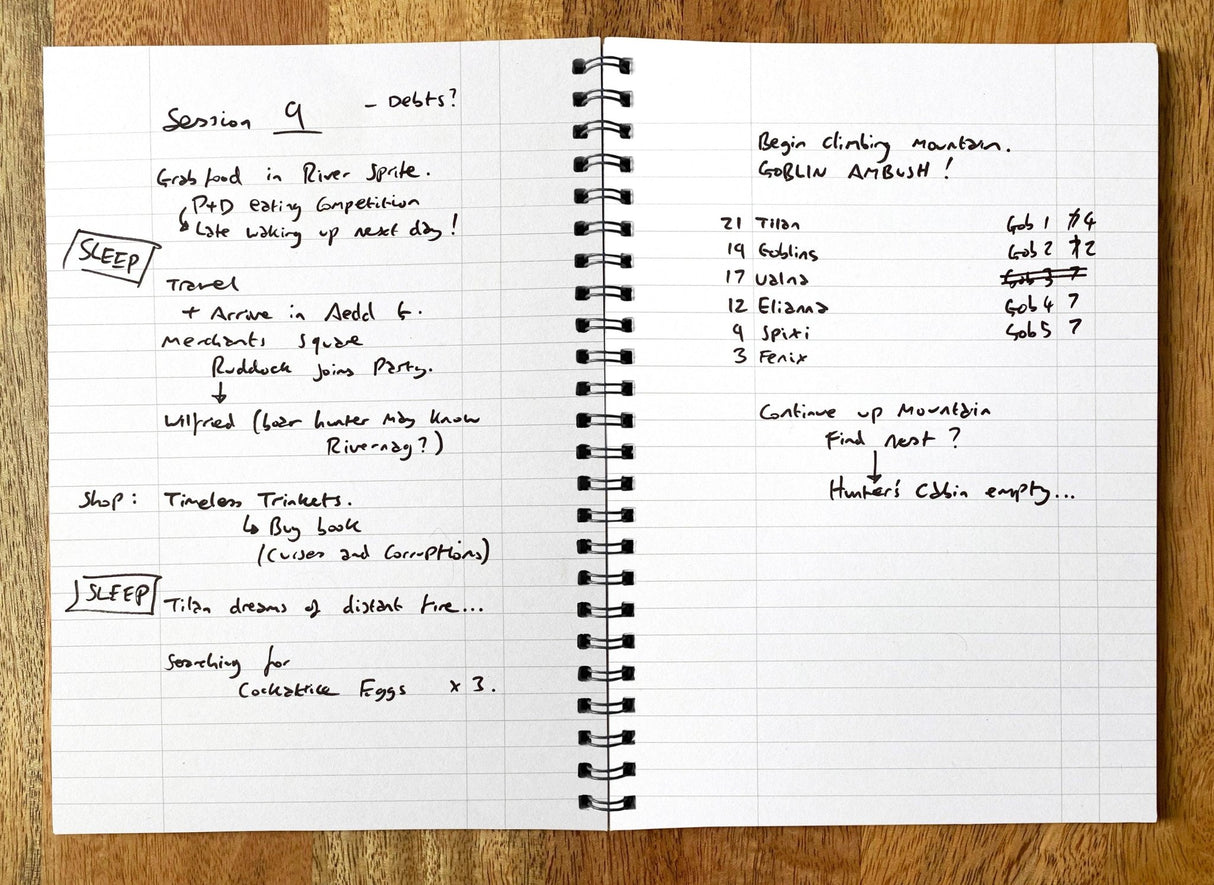 Session 9 - Debts?
Grab food in River Sprite.
P+D eating Competition
Late waking up next day!
SLEEP
Travel
+ Arrive in Aedd G.
Merchants Square
Ruddock joins Party.
↓
Wilfried (boar hunter may know
Rivernag?)
Shop: Timeless Trinkets.
↳ Buy book
(Curses and Corruptions)
SLEEP
Tilan dreams of distant fire...
Searching for
Cockatrice Eggs x 3.
Begin climbing mountain.
GOBLIN AMBUSH!
21 Tilan Gob 1 7 4
19 Goblins Gob 2 7 2
17 Valna Gob 3 7
12 Elianna Gob 4 7
9 Spixi Gob 5 7
3 Fenix
Continue up Mountain
Find nest?
↓
Hunter's Cabin empty...